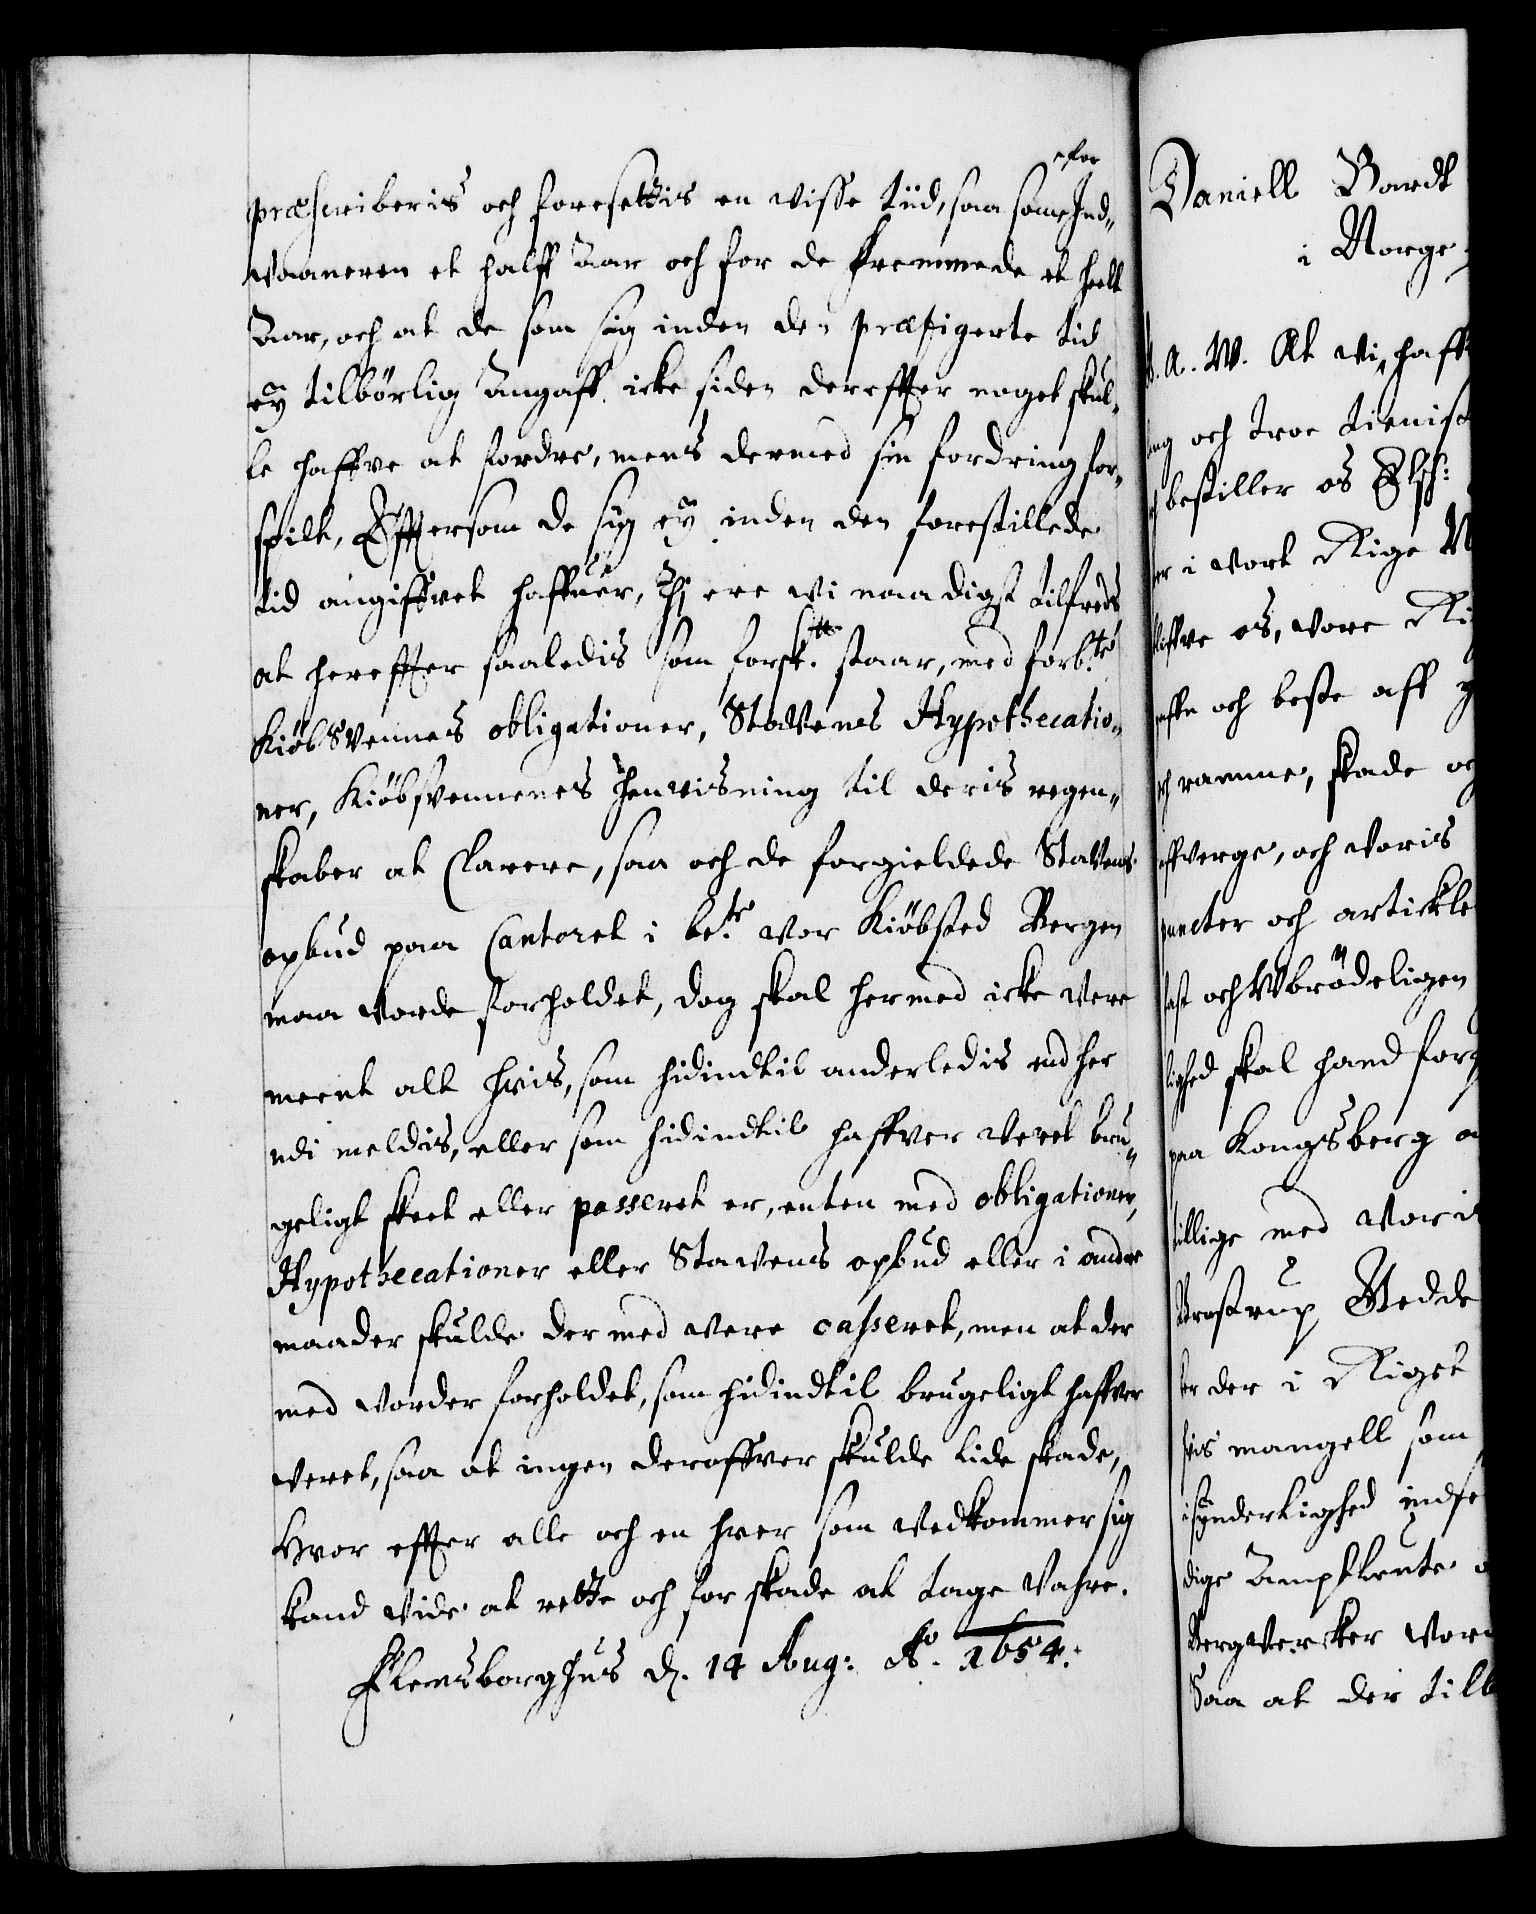 præscriberis och foresettis en visse tiid, saa som for Ind„
vaaneren et halff Aar och for de fremmede et heelt
Aar, och at de som sig inden den præfigerte tid
ey tilbørlig angaff, icke siden dereffter noget skul„
le haffve at fordre, mens dermed sin fordring for„
spilt, Effttersom de sig ey inden den forestillede
tid angiffvet haffuer, Thj ere wi naadigst tilfreds
at hereffter saaledis som forskt. staar, med forbte.
Kiøbsvennes obligationer, Stavens Hypothecatio„
ner, Kiøbsvennenes henvisning til deris regen„
skaber at Clarere, saa och de forgieldede Stavens
opbud paa Cantoret i bete. vor Kiøbsted Bergen
maa vorde forholdet, dog skal hermed icke vere
meent alt hvis, som hidindtil anderledis end her
udi meldis, eller som hidindtil haffver veret bru„
geligt skeet eller passeret er, enten med obligationer,
Hypothecationer eller Stavens opbud eller i andre
maader skulde der med vere casseret, men at der
med vorder forholdet, som hidindtil brugeligt haffver
veret, saa at ingen deroffver skulde lide skade,
Hvor effter alle och en hver som vedkommer sig
kand vide at rette och for skade at tage vahre.
Flensborghus d. 14 Aug: Ao. 1654.
Daniell Bardt
i Norge
G. A. W. At vi haff
och troe tienist
bestiller os Elsk:
er i vort Rige N
os, vore Ri
och beste aff
ramme, skade og
affverge, och voris
puncter och artickle
fast och Vbrødeligen
lighed skal hand forg
paa Kongsberg
tillige med vori
Vedde
der i Riget
hvis mangell som
isynderlighed indse
dige
Bergvercker vor
Saa at der tilb